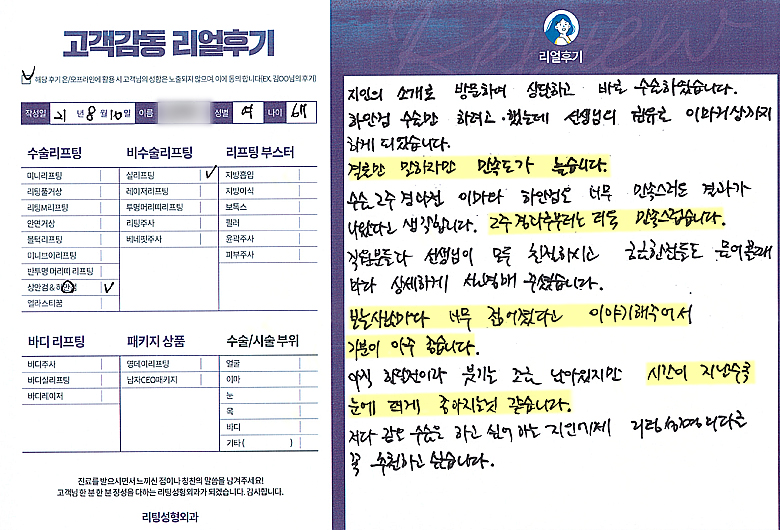 고객감동 리얼후기
해당 후기 온/오프라인에 활용 시 고객님의 성함은 노출되지 않으며, 이에 동의 합니다(EX. 김OO님의 후기)
작성일 21 년 8 월 10 일 이름 성별 여 나이
수술리프팅 비수술리프팅 리프팅 부스터
미니리프팅 실리프팅 지방흡입
리팅풀거상 레이저리프팅 지방이식
리팅M리프팅 투명머리띠리프팅 보톡스
안면거상 리팅주사 필러
볼턱리프팅 베네핏주사 윤곽주사
미니브이리프팅 피부주사
반투명 머리띠 리프팅
상안검 & 하안검
엘라스티꿈
바디 리프팅 패키지 상품 수술/시술 부위
바디주사 영데이리프팅 얼굴
바디실리프팅 남자CEO패키지 이마
바디레이저 눈
목
바디
기타 ( )
진료를 받으시면서 느끼신 점이나 칭찬의 말씀을 남겨주세요!
고객님 한 분 한 분 정성을 다하는 리팅성형외과가 되겠습니다. 감사합니다.
리팅성형외과
Review
리얼후기
지인의 소개로 방문하여 상담하고 바로 수술하였습니다.
하안검 수술만 하려고 했는데 선생님의 권유로 이마거상까지
하게 되었습니다.
결론만 말하자면 만족도가 높습니다.
수술 2주 경과된 이마와 하안검도 너무 만족스러운 결과가
나왔다고 생각합니다. 2주 경과후부터는 더욱 만족스럽습니다.
직원분들과 선생님이 모두 친절하시고 궁금한점들도 물어볼때
마다 상세하게 설명해 주셨습니다.
보는사람마다 너무 젊어졌다고 이야기해주어서
기분이 아주 좋습니다.
아직 회복전이라 붓기는 조금 남아있지만 시간이 지날수록
눈에 띄게 좋아지는것 같습니다.
저와 같은 수술을 하고 싶어 하는 지인에게 리팅성형외과를
꼭 추천하고 싶습니다.